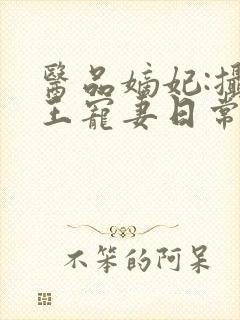 醫品嫡妃:攝
王寵妻日常
不笨的阿呆